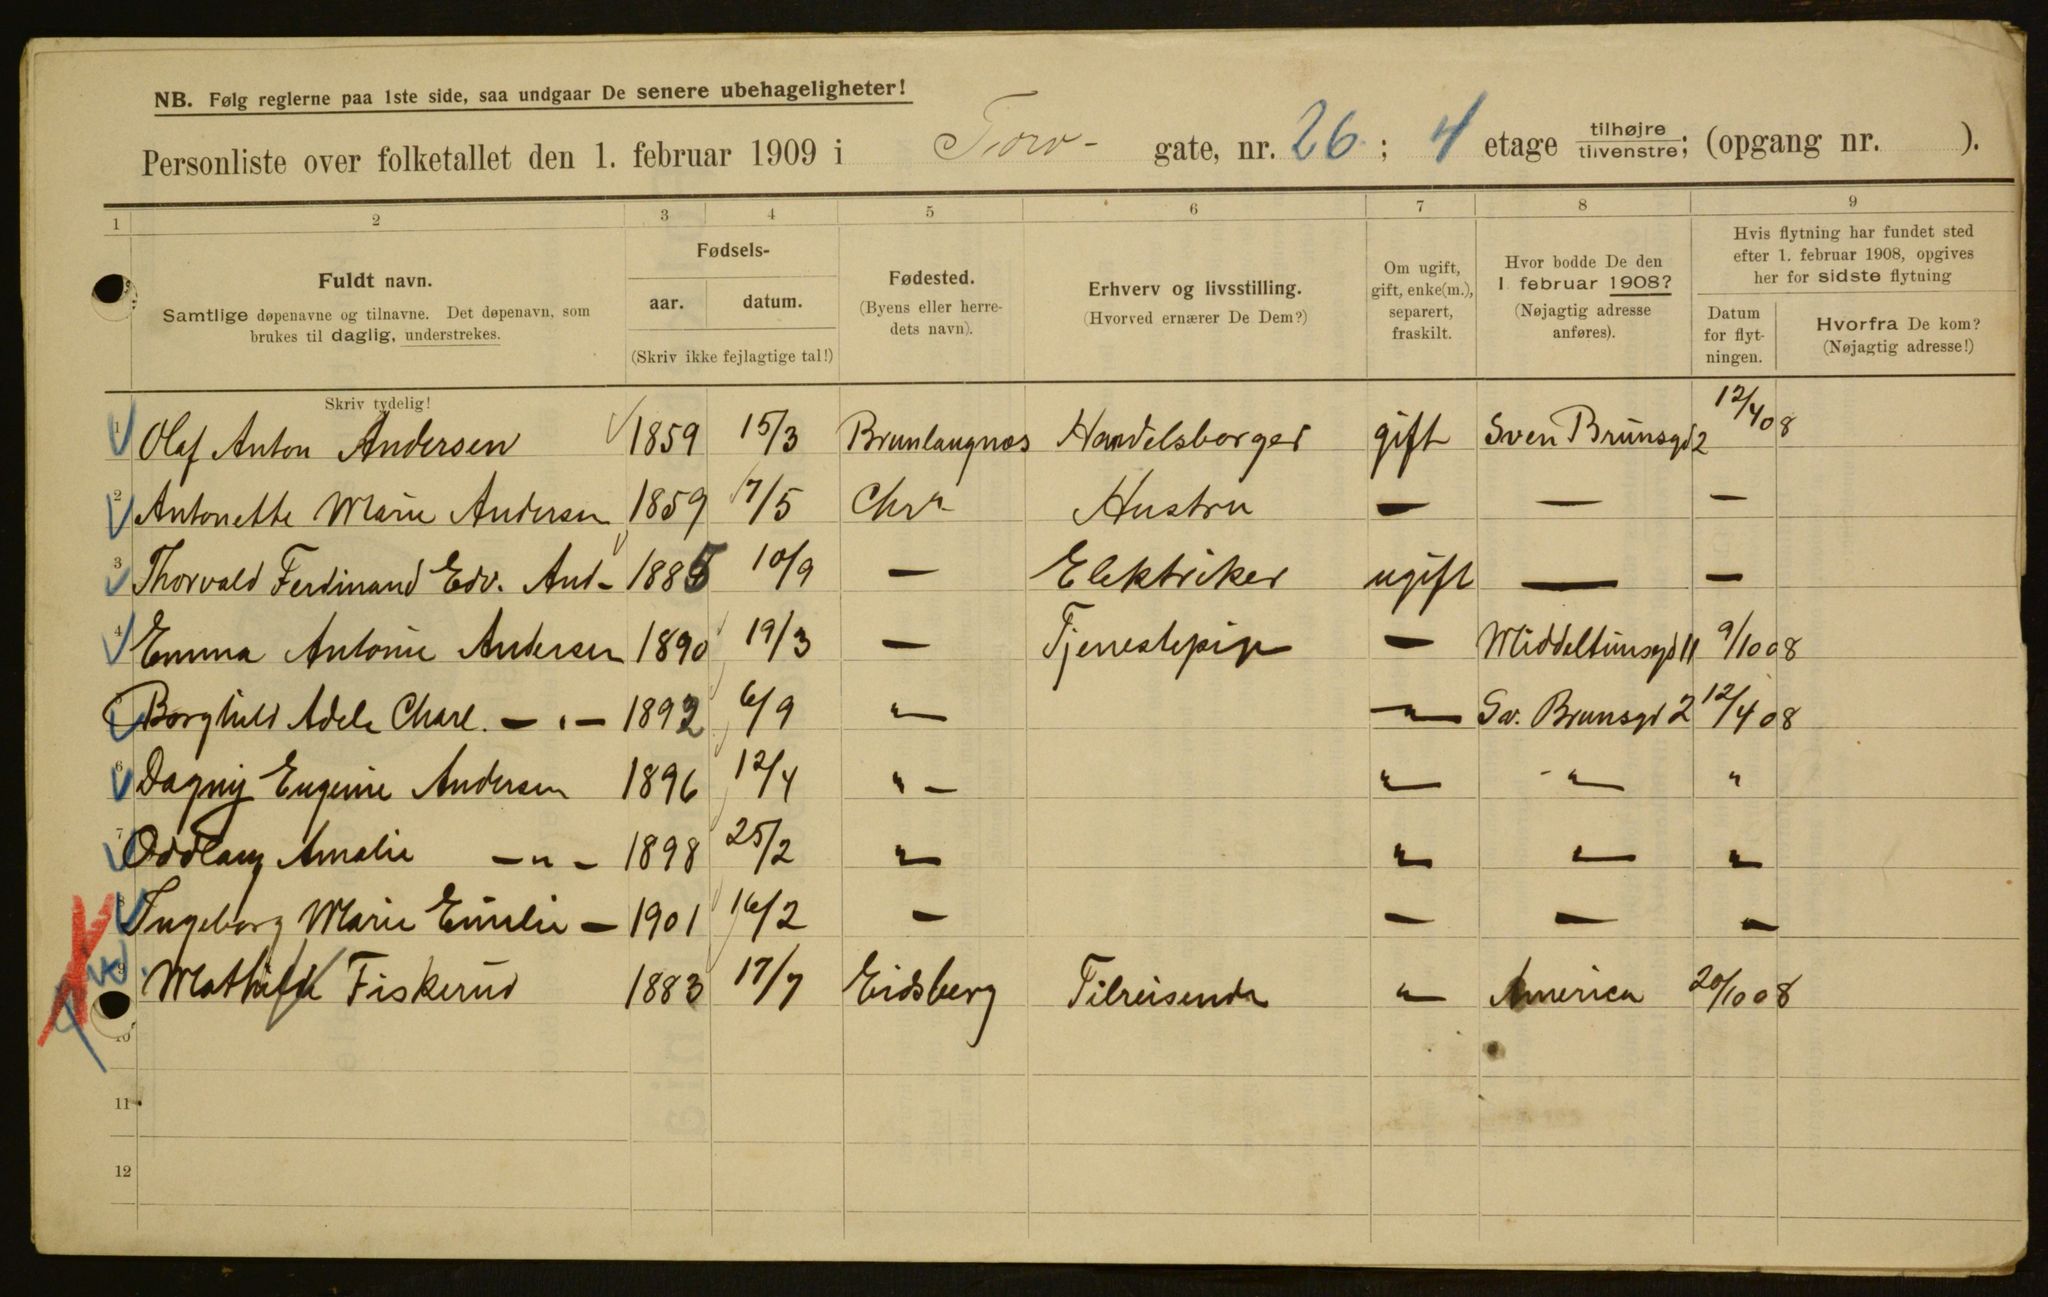 NB. Følg reglerne paa 1ste side, saa undgaar De senere ubehageligheter!
Personliste over folketallet den 1. februar 1909 i Torv- gate, nr. 26 ; 4 etage tilhøjre tilvenstre; (opgang nr. ).
1 2 3 4 5 6 7 8 9
Fuldt navn.
Samtlige døpenavne og tilnavne. Det døpenavn, som
brukes til daglig, understrekes.
Skriv tydelig!
Fødsels-
aar. datum.
(Skriv ikke fejlagtige tal!)
Fødested.
(Byens eller herre-
dets navn).
Erhverv og livsstilling.
(Hvorved ernærer De Dem?)
Om ugift,
gift, enke(m.),
separert,
fraskilt.
Hvor bodde De den
1. februar 1908?
(Nøjagtig adresse
anføres).
Hvis flytning har fundet sted
efter 1. februar 1908, opgives
her for sidste flytning
Datum
for flyt-
ningen.
Hvorfra De kom?
(Nøjagtig adresse!)
1 Olaf Anton Andersen 1859 15/3 Brunlangnæs Handelsborger gift Sven Brunsgd 2 12/4 08
2 Antonette Marie Andersen 1859 17/5 Chra Hustru — — —
3 Thorvald Ferdinand Edv. And- 1885 10/9 — Elektriker ugift — —
4 Emma Antonie Andersen 1890 19/3 — Tjenestepige — Middeltunsgd 11 9/10 08
Borghild Adele Charl. — " — 1892 6/9 — " — Sv. Brunsgd 2 12/4 08
6 Dagny Eugenie Andersen 1896 12/4 " — " — " "
7 Oddlaug Amalie — " — 1898 25/2 " " — "
8 Ingeborg Marie Emilie — 1901 16/2 — — — —
9 Mathilde Fiskerud 1883 17/7 Eidsberg Tilreisende " America 20/10 08
10
11
12